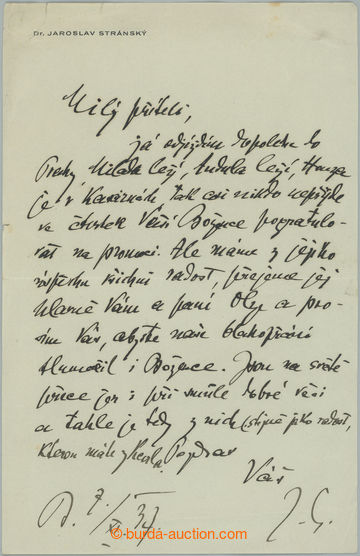 Dr. JAROSLAV STRÁNSKÝ
Milý příteli,
já odjíždím dopoledne do
Prahy, Milada leží, leží,
je v tak asi nikdo nepřijde
ve čtvrtek Vaší Božence pogratulo-
vat na promoci. Ale máme z jejího
úspěchu všichni radost, přejeme jej
hlavně Vám a paní Olze a pro-
sím Vás, abyste naše blahopřání
tlumočil i Božence. Jsou na světě
přece jen i při smůle dobré věci
a tahle je tedy z nich (stejně jako radost,
kterou máte z Pozdrav
Váš
B. 7./ 34
J. S.
© burda-auction.com